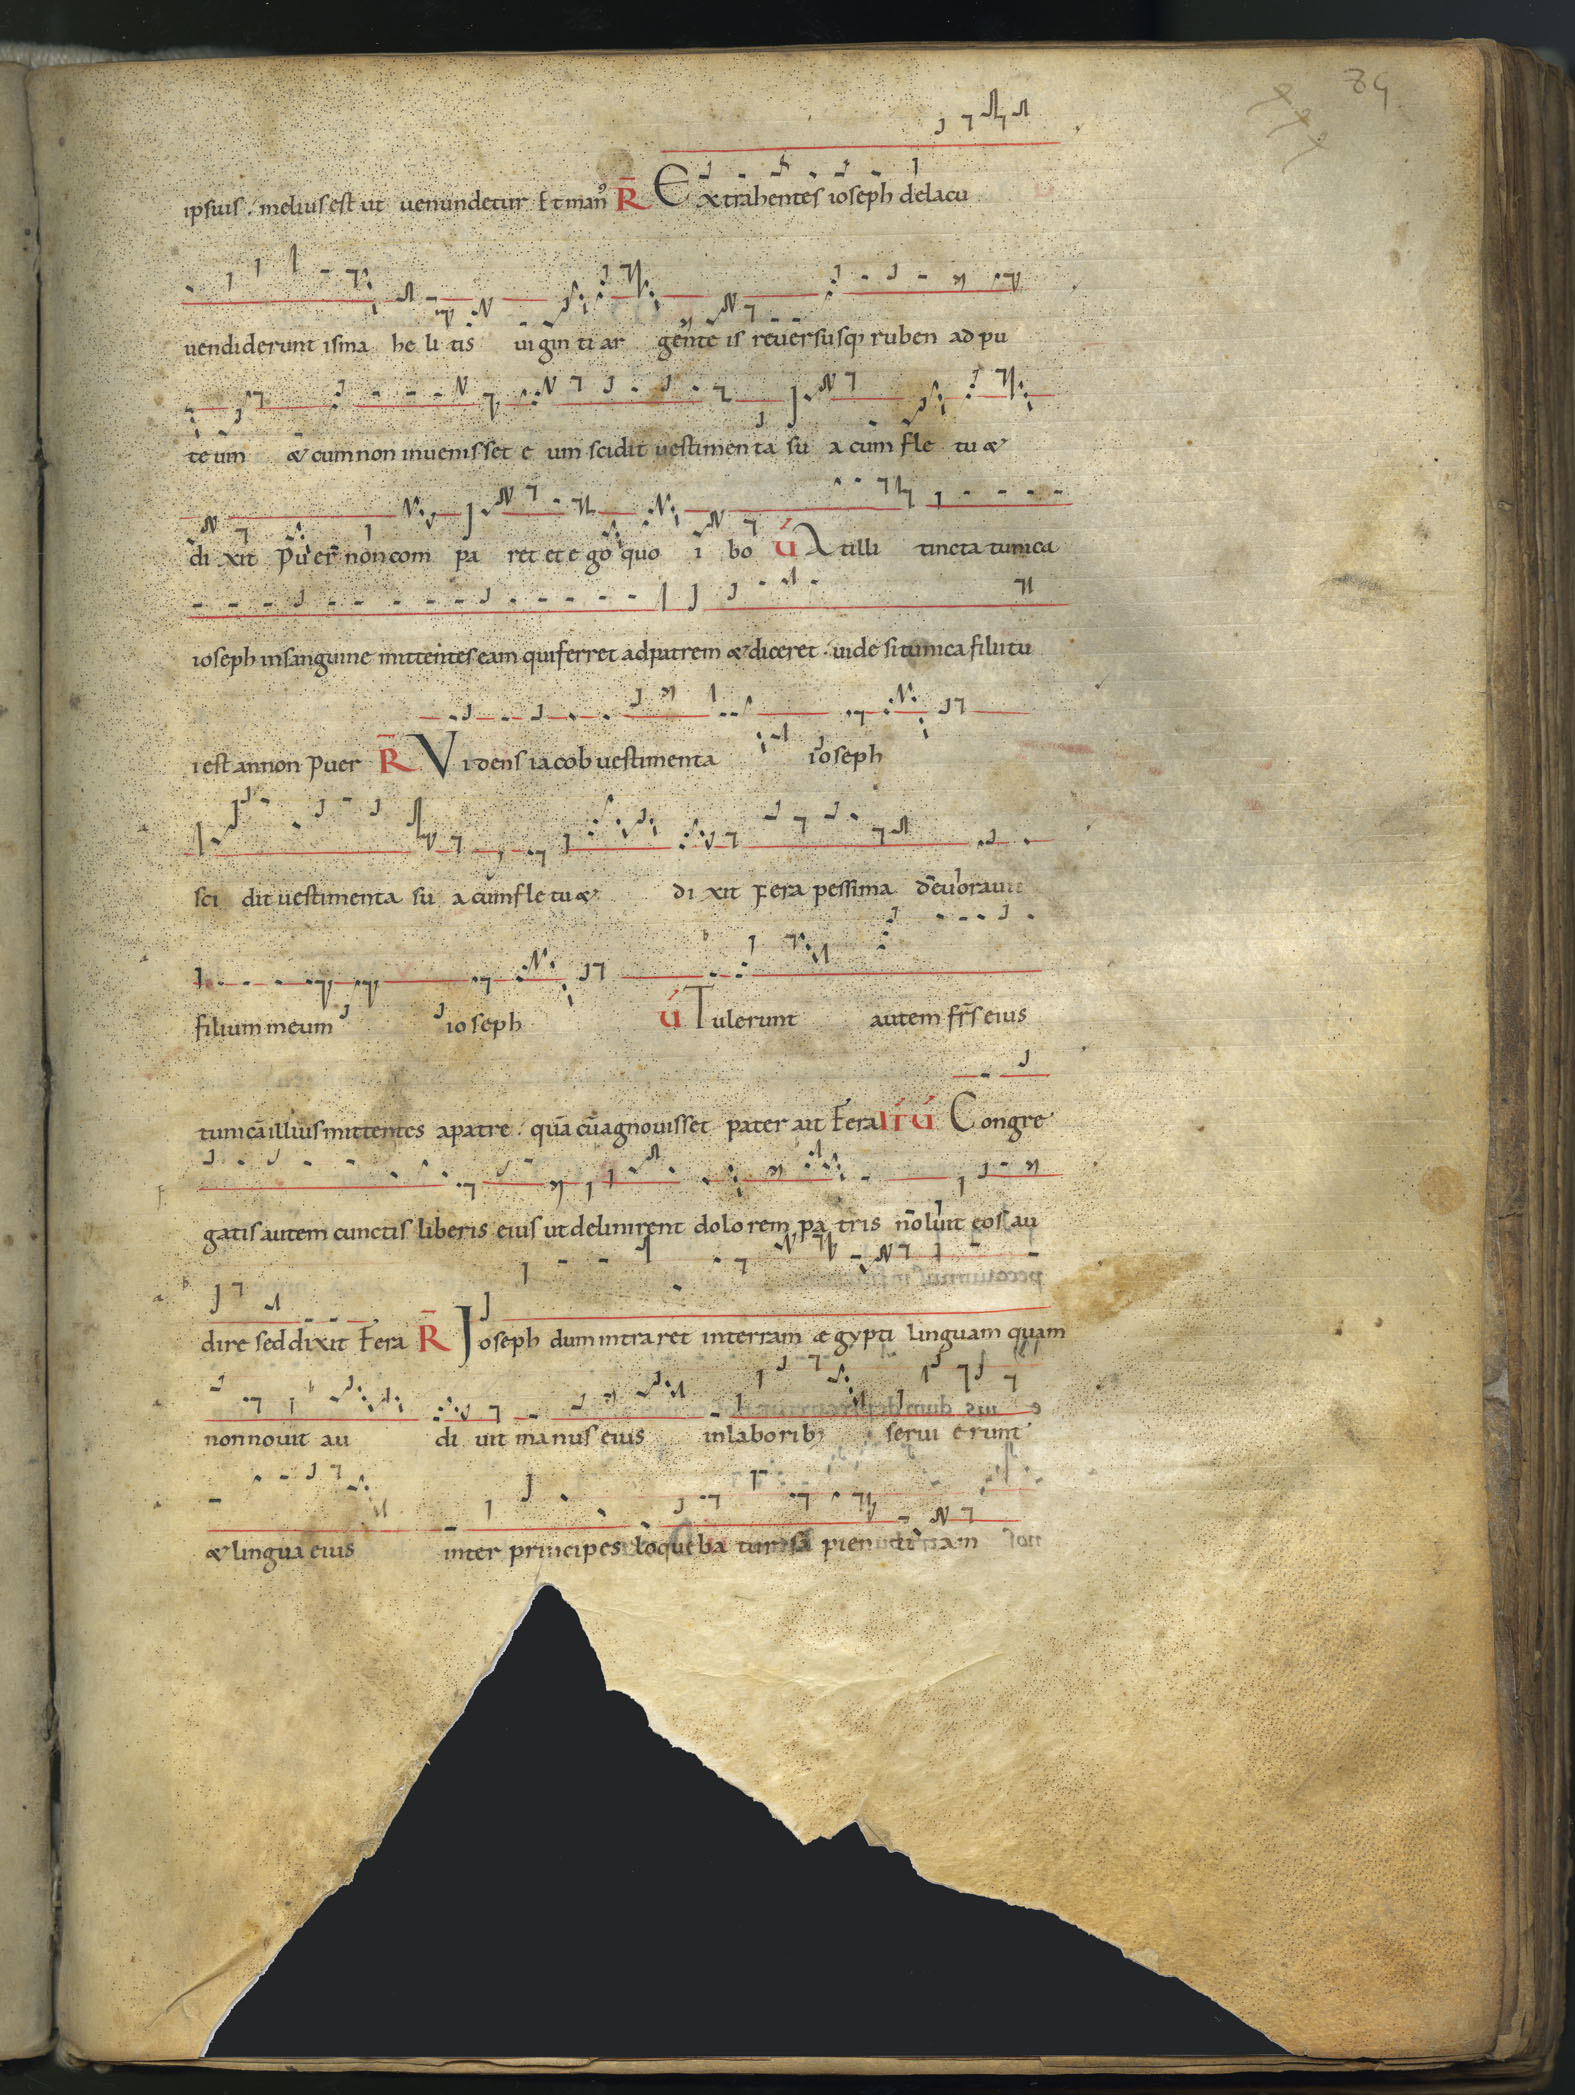 89
ipsuis . melius est ut uenundetur Et man⁹ R̄ Extrahentes ioseph delacu
uendiderunt isma he li tis ui gin ti ar gente is reuersusq; ruben ad pu
te um & cum non inuenisset e um scidit uestimenta su a cum fle tu &
di xit Puer non com pa ret et e go quo i bo V́ Atilli tincta tunica
ioseph insanguine mittentes eam quiferret adpatrem & diceret . uide situnica filii tu
i est annon Puer R̄ Videns iacob uestimenta ioseph
sci dit uestimenta su a cumfle tu & di xit Fera pessima deuorauit
filium meum ioseph V́ Tulerunt autem fr̄s eius
tunicā illius mittentes apatre . quā cū agnouisset pater ait Fera It́ V́ Congre
gatis autem cunctis liberis eius ut delinirent dolorem pa tris noluit eos au
dire sed dixit Fera R̄ Joseph dum intraret interram ægypti linguam quam
non nouit au di uit manus eius inlaborib; serui erunt
& lingua eius inter principes loqueba tur sa pien ti am